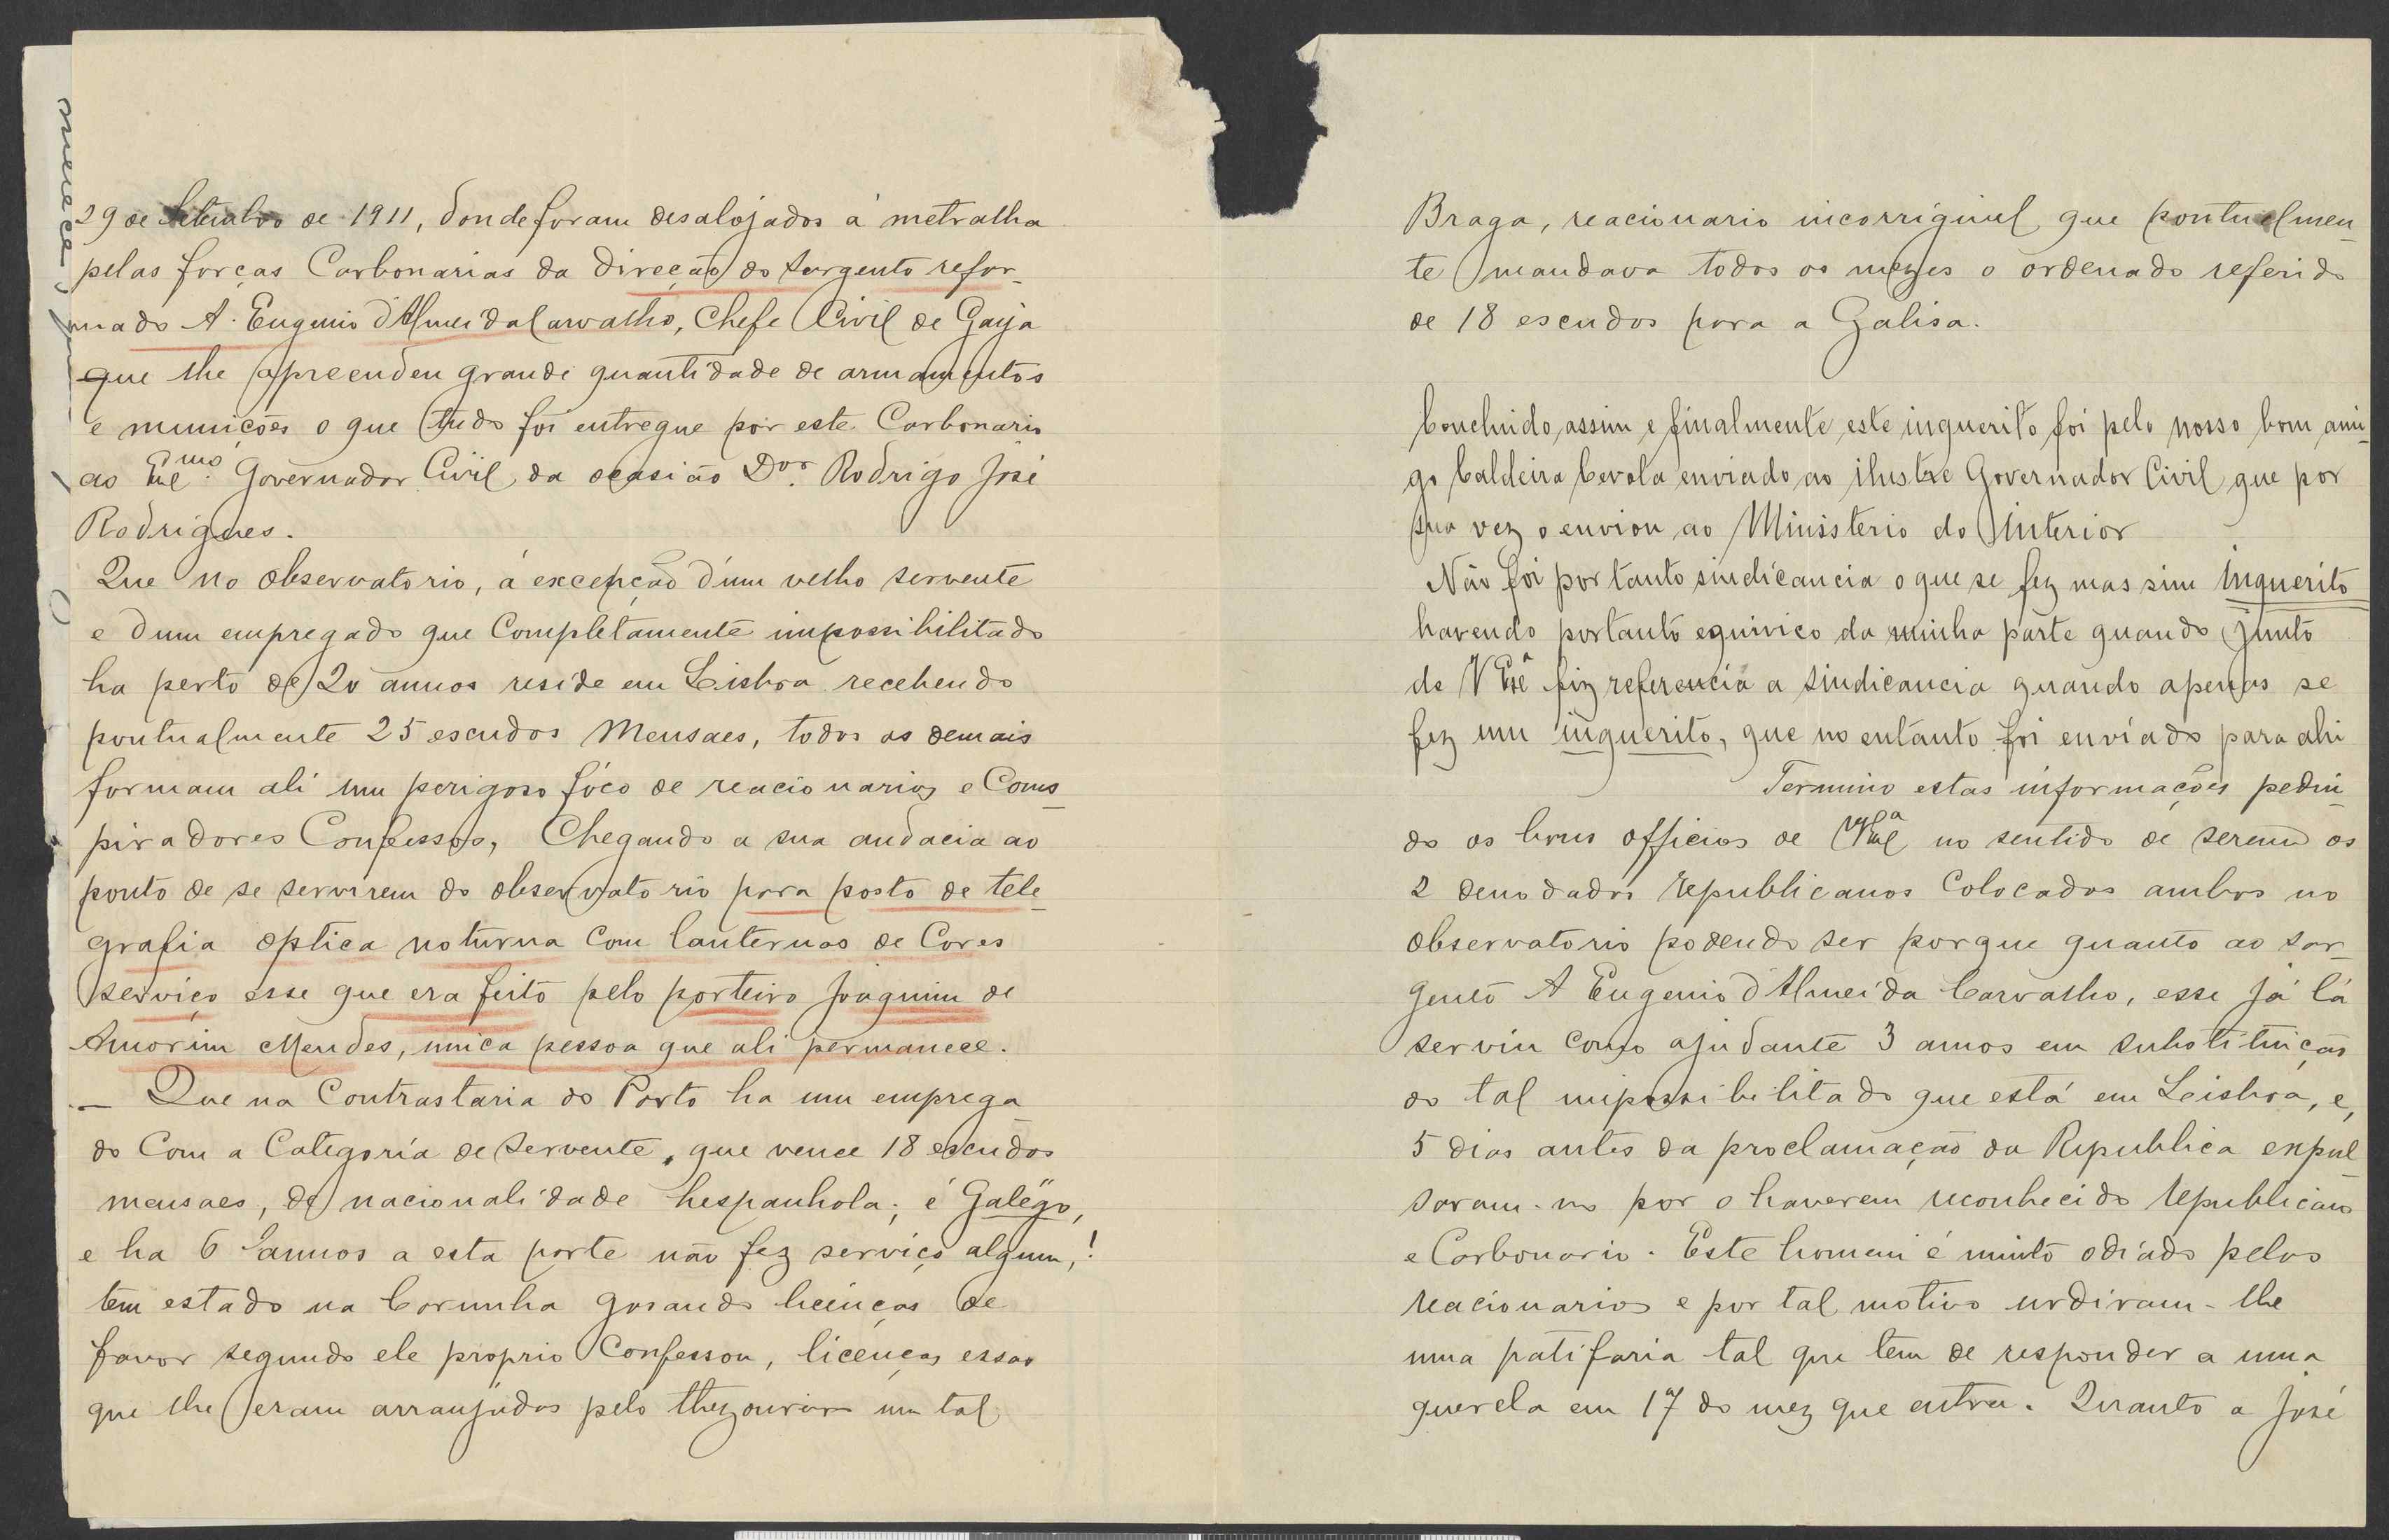 29 de Setembro de 1911, donde foram desalojados á metralha
pelas forças Carbonarias da direção do Sargento refor-
mado A. Eugenio d'Almeida Carvalho, Chefe Civil de Gaya
que lhe apreendeu grande quantidade de armamentos
e munições o que tudo foi entregue por este Carbonario
ao Exmo. Governador Civil da ocasião Dor. Rodrigo José
Rodrigues.
Que no observatorio, á excepção d'um velho servente
e dum empregado que Completamente impossibilitado
ha perto de 20 annos reside em Leisboa recebendo
pontualmente 25 escudos Mensaes, todos os demais
formam ali um perigoso fóco de reacionarios e Cons-
piradores Confessos, Chegando a sua audacia ao
ponto de se servirem do observatorio para posto de tele-
grafia optica noturna com lanternas de Cores
serviço esse que era feito pelo porteiro Joaquim de
Amorim Mendes, unica pessoa que ali permanece.
— Que na Contrastaria do Porto ha um emprega-
do Com a Categoria de Servente, que vence 18 escudos
mensaes, de nacionalidade hespanhola; é Galêgo,
e ha 6 annos a esta parte não fez serviço algum,!
tem estado na Corunha gosando licenças de
favor segundo ele proprio Confessou, licenças essas
que lhe eram arranjadas pelo thezoureiro um tal
Braga, reacionario incorrigivel que pontualmen-
te mandava todos os mezes o ordenado referido
de 18 escudos para a Galisa.
Concluido, assim e finalmente este inquerito foi pelo nosso bom ami-
go Caldeira Cevola enviado ao ilustre Governador Civil que por
sua vez o enviou ao Ministerio do Interior
Não foi portanto sindicancia o que se fez mas sim inquerito
havendo portanto equivico da minha parte quando junto
de V Exª fiz referencia a sindicancia quando apenas se
fez um inquerito, que no entanto foi enviado para ahi
Termino estas informações pedin-
do os bons officios de V Exª no sentido de serem os
2 denodados republicanos Colocados ambos no
observatorio podendo ser porque quanto ao sar-
gento A Eugenio d'Almeida Carvalho, esse já lá
serviu como ajudante 3 anos em substituição
do tal impossibilitado que está em Leisboa, e,
5 dias antes da proclamação da Republica expul-
saram-no por o haverem reconhecido republicano
e Carbonario. Este homem é muito odiado pelos
reacionarios e por tal motivo urdiram-lhe
uma patifaria tal que tem de responder a uma
querela em 17 do mez que entra. Quanto a José